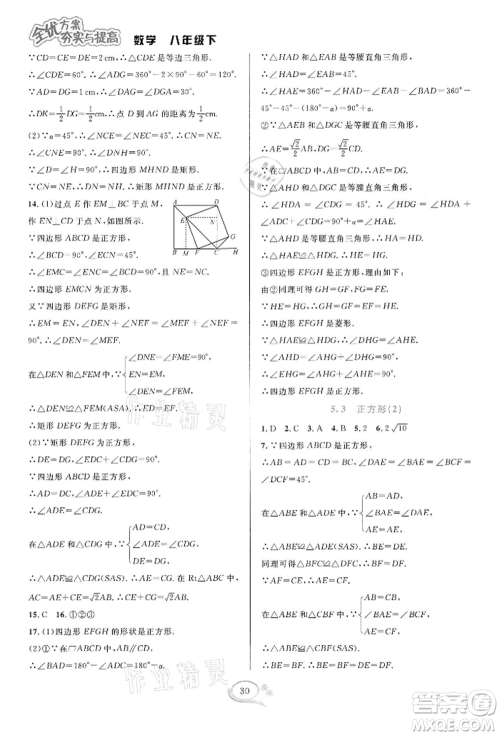 全优方案
夯实与提高
数学 八年级下
∵CD=CE=DE,∴△CDE是等边三角形.
∴∠CDE=60°,∴∠ADG=360°-2×90°-60°=120°.
又∵AD=DG=1cm,∴∠DAK=30°.
∴DK=1/2DG=1/2,∴点D到AG的距离为1/2.
(2)∵α=45°,∴∠NCE=∠NEC=45°.
∴∠CNE=90°,∴∠DNH=90°.
∵∠D=∠H=90°,
∴四边形MHND是矩形.
∵CN=NE,∴DN=NH.
∴矩形MHND是正方形.
14.(1)过点E作EM⊥BC于点M,过点E
作EN⊥CD于点N,如图所示.
∵四边形ABCD是正方形,
∴∠BCD=90°,∠ECN=45°.
∴∠EMC=∠ENC=∠BCD=90°,且NE=NC.
∴四边形EMCN是正方形,∴EM=EN.
又∵四边形DEFG是矩形,
∴EM=EN,∠DEN+∠NEF=∠MEF+∠NEF
=90°,∴∠DEN=∠MEF.
在△DEN和△FEM中,∵
∠DNE=∠FME=90°,
EN=EM,
∠DEN=∠FEM,
∴△DEN≌△FEM(ASA).∴ED=EF.
∴矩形DEFG是正方形.
(2)∵矩形DEFG为正方形,
∴DE=DG,∠EDC+∠CDG=90°.
∵四边形ABCD是正方形,
∴AD=DC,∠ADE+∠EDC=90°.
∴∠ADE=∠CDG.
在△ADE和△CDG中,∵
AD=CD,
∠ADE=∠CDG,
DE=DG,
∴△ADE≌△CDG(SAS).∴AE=CG.
∴AE+CE=CG+CE=EG=√2EF.
15.C 16.①②③
17.(1)四边形EFGH的形状是正方形.
(2)①∵在▱ABCD中,AB∥CD,
∴∠BAD=180°-∠ADC=180°-α.
∵△HAD和△EAB是等腰直角三角形,
∴∠HAD=∠EAB=45°.
∴∠HAE=360°-∠HAD-∠EAB-∠BAD=
360°-45°-45°-(180°-α)=90°+α.
②∵△AEB和△DGC是等腰直角三角形,
∴AE=√2/2AB,DG=√2/2CD.
∵在▱ABCD中,AB=CD,∴AE=DG.
∵△AHD和△DGC是等腰直角三角形,
∴∠HDA=∠CDG=45°.
∴△HAE≌△HDG.∴HE=HG.
③四边形EFGH是正方形,理由如下:
由②同理可得GH=GF,FG=FE.
∵HE=HG,∴GH=GF=EF=HE.
∴四边形EFGH是菱形.
∵△HAE≌△HDG,∴∠DHG=∠AHE.
∵∠AHD=∠AHG+∠DHG=90°,
∴∠EHG=∠AHG+∠AHE=90°.
∴四边形EFGH是正方形.
5.3 正方形(2)
1.D 2.C 3.A 4.B 5.2 6.2√10
7.∵四边形ABCD是正方形,
∴AB=AD=BC=CD.
∴∠ABE=∠ADE=∠BCF=
∠DCF=45°.
在△ABE和△ADE中,∵
AB=AD,
∠ABE=∠ADE,
BE=DE,
∴△ABE≌△ADE(SAS).
同理可得△BCF≌△DCF(SAS).
在△ABE和△CBF中,∵
AB=CB,
∠ABE=∠CBF,
BE=BF,
∴△ABE≌△CBF(SAS).
作业精灵
作业精灵
30
答案圈
MXQE.COM